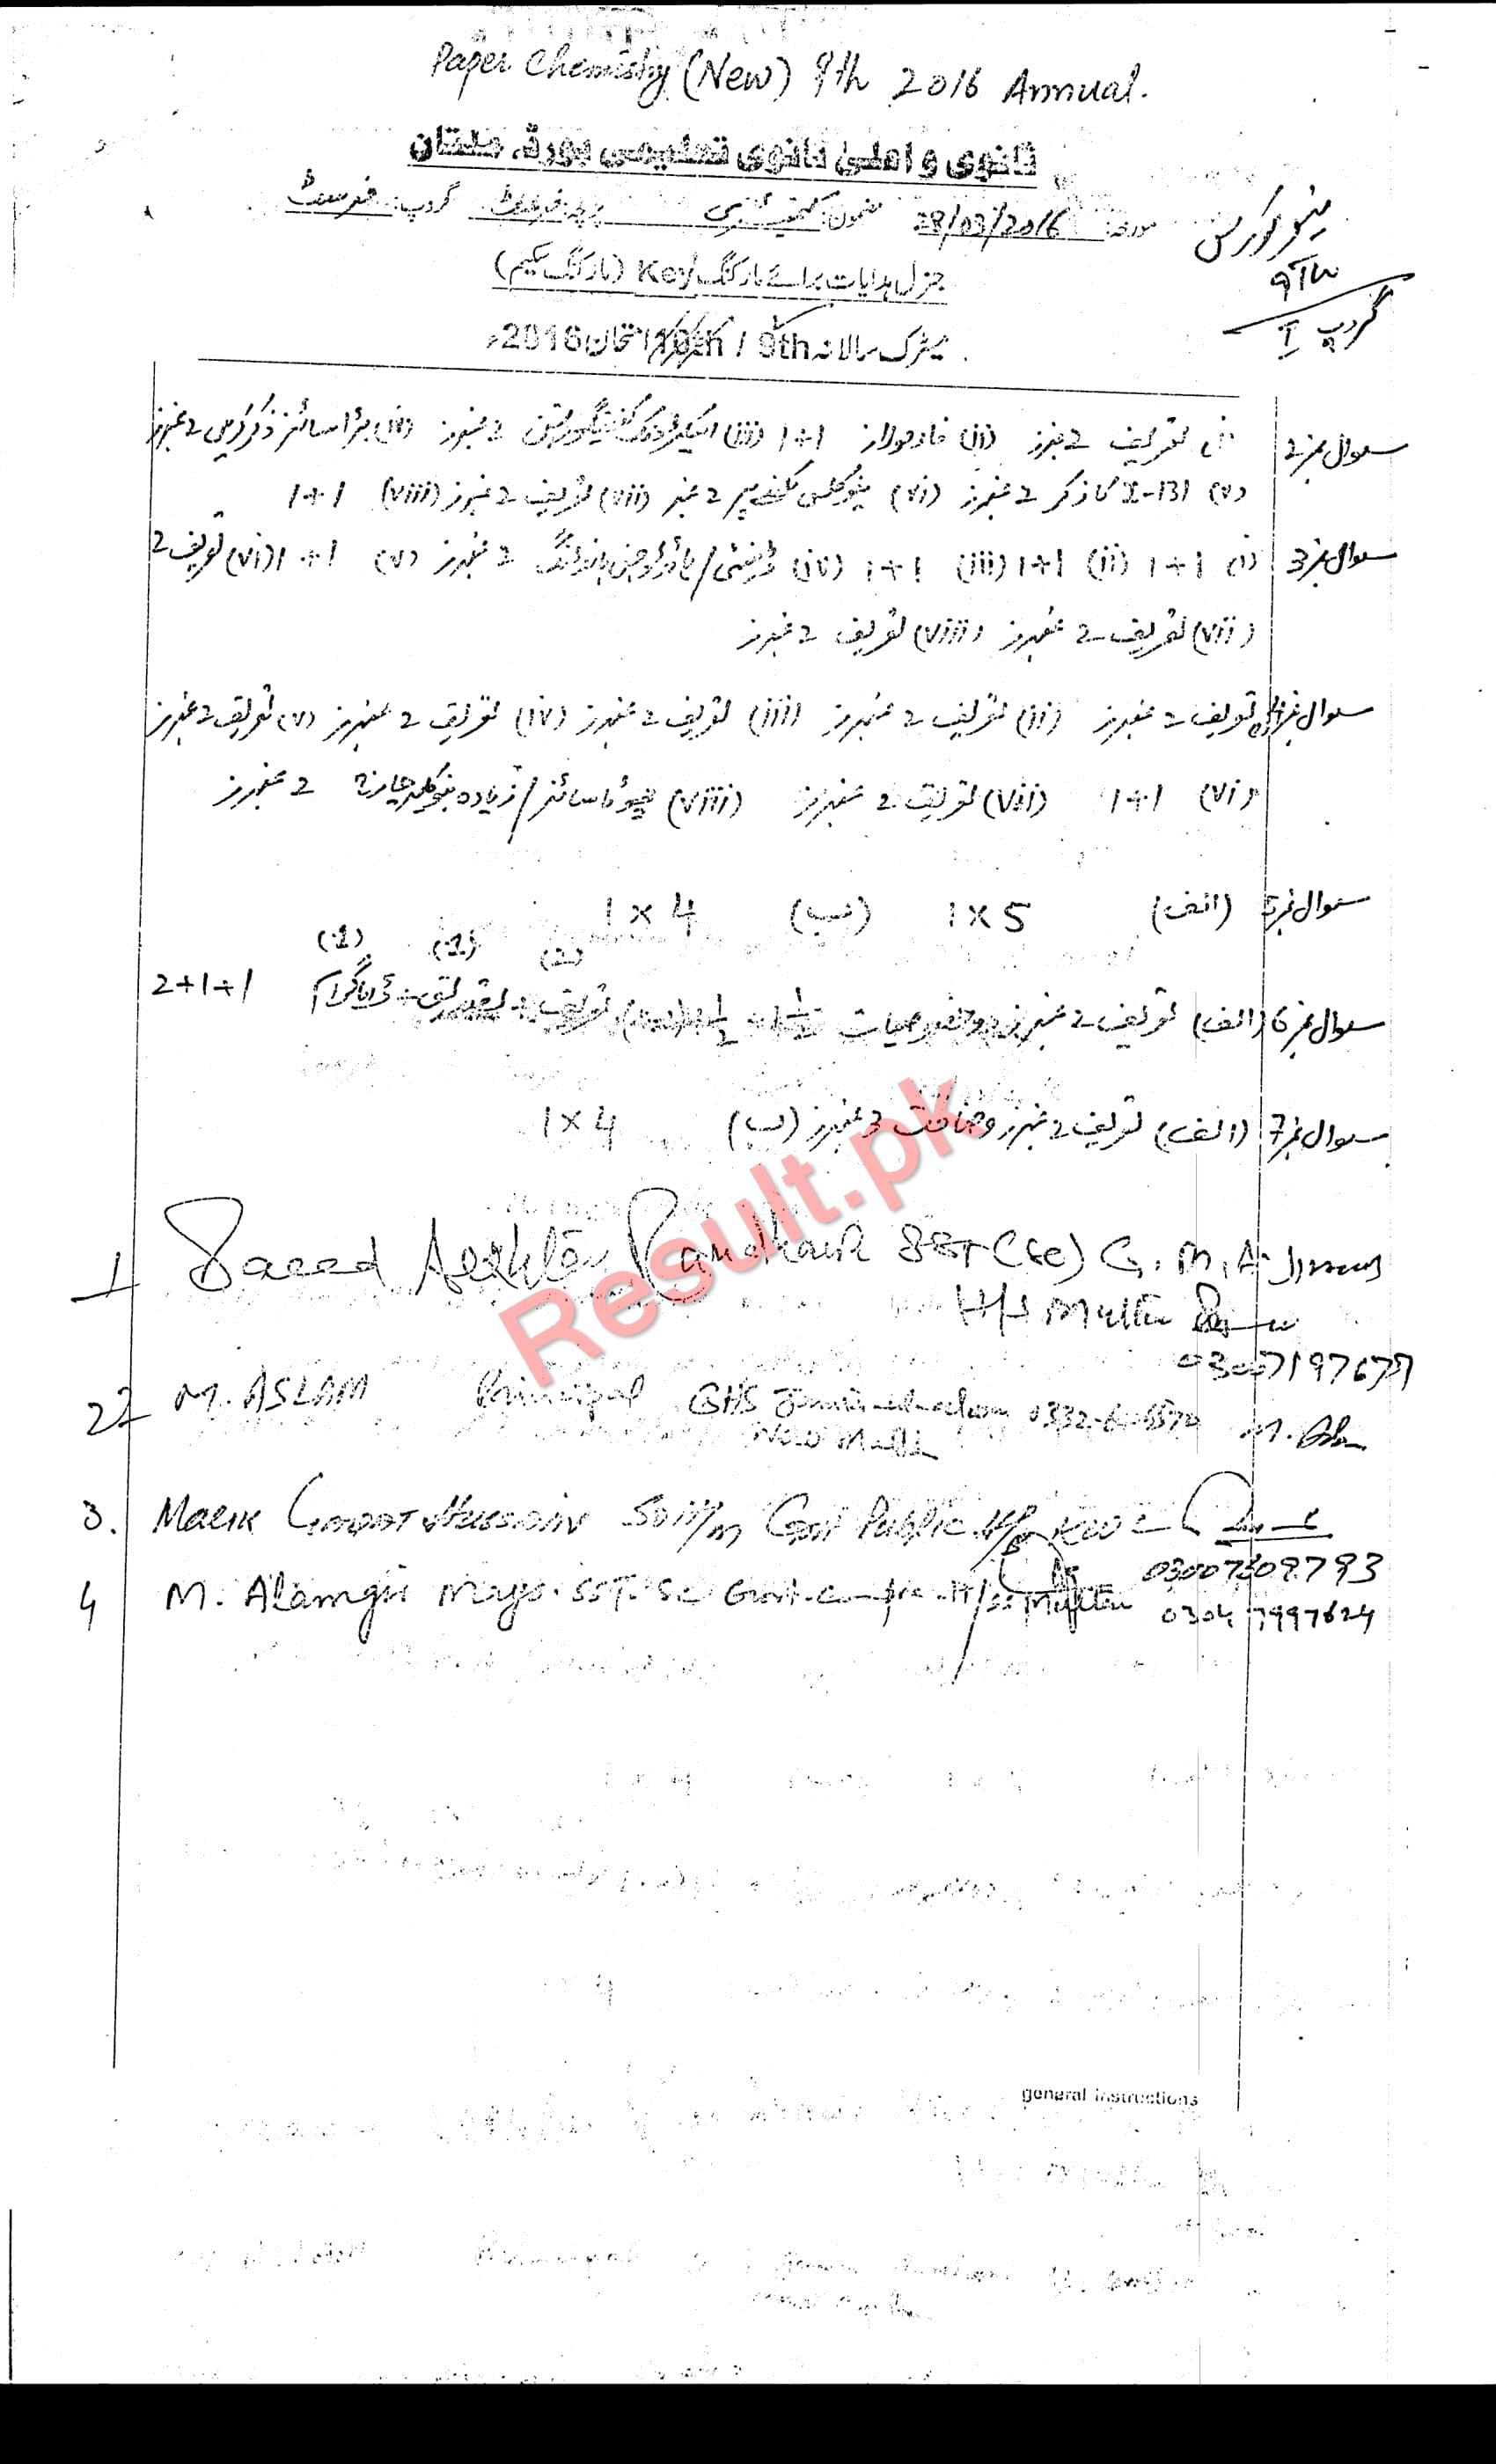 Paper Chemistry (New) 9th 2016 Annual.
ثانوی و اعلیٰ ثانوی تعلیمی بورڈ، ملتان
مورخہ: 28/03/2016 مضمون: کیمسٹری پرچہ: گروپ: فرسٹ
نیو کورس
9th
گروپ I
جنرل ہدایات برائے مارکنگ Key (مارکنگ سکیم)
میٹرک سالانہ 9th / 10th امتحان 2016ء
سوال نمبر 2 (i) تعریف 2 نمبرز (ii) فارمولاز 1+1 (iii) الیکٹرونک کنفیگوریشن 2 نمبرز (iv) بڑا سائز ذکر کریں 2 نمبرز
(v) I-131 کا ذکر 2 نمبرز (vi) 2 نمبر (vii) تعریف 2 نمبرز (viii) 1+1
سوال نمبر 3 (i) 1+1 (ii) 1+1 (iii) 1+1 (iv) ڈینسٹی/ہائیڈروجن بانڈنگ 2 نمبرز (v) 1+1 (vi) تعریف 2
(vii) تعریف 2 نمبرز (viii) تعریف 2 نمبرز
سوال نمبر 4 (i) تعریف 2 نمبرز (ii) تعریف 2 نمبرز (iii) تعریف 2 نمبرز (iv) تعریف 2 نمبرز (v) تعریف 2 نمبرز
(vi) 1+1 (vii) تعریف 2 نمبرز (viii) چھوٹا سائز/زیادہ نیوکلیر چارج 2 نمبرز
سوال نمبر 5 (الف) 1×5 (ب) 1×4
(2) (1) (1)
سوال نمبر 6 (الف) تعریف 2 نمبرز دو خصوصیات 1½ + 1½ (ب) تعریف + + ڈایاگرام 2+1+1
سوال نمبر 7 (الف) تعریف 2 نمبرز وضاحت 3 نمبرز (ب) 1×4
1 Saeed Akhtar SST (Sc) G.M.A.
H/S Multan
2 M. ASLAM Principal GHS
M. Aslam
3. Malik Hussain Govt Public
03007309793
4 M. Alamgir Mayo. SST. Sc Govt. Multan
0304 7997624
general instructions
Result.pk